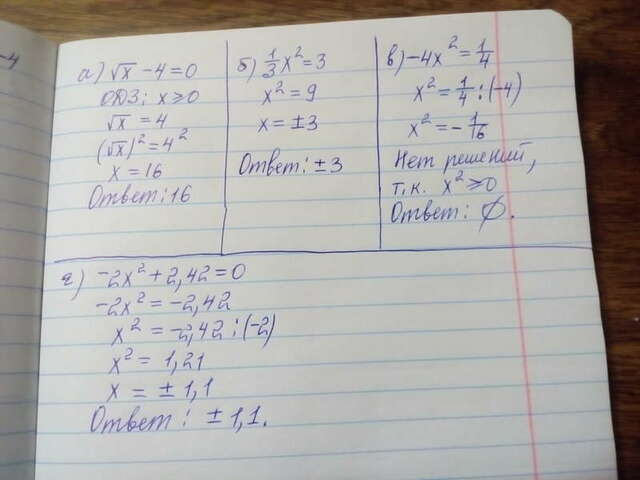 -4
а) √x - 4 = 0
ОДЗ: x ⩾ 0
√x = 4
(√x)² = 4²
x = 16
Ответ: 16
б) 1/3 x² = 3
x² = 9
x = ±3
Ответ: ±3
в) -4x² = 1/4
x² = 1/4 : (-4)
x² = - 1/16
Нет решений,
т.к. x² ⩾ 0
Ответ: ∅.
г) -2x² + 2,42 = 0
-2x² = -2,42
x² = -2,42 : (-2)
x² = 1,21
x = ± 1,1
Ответ: ± 1,1.